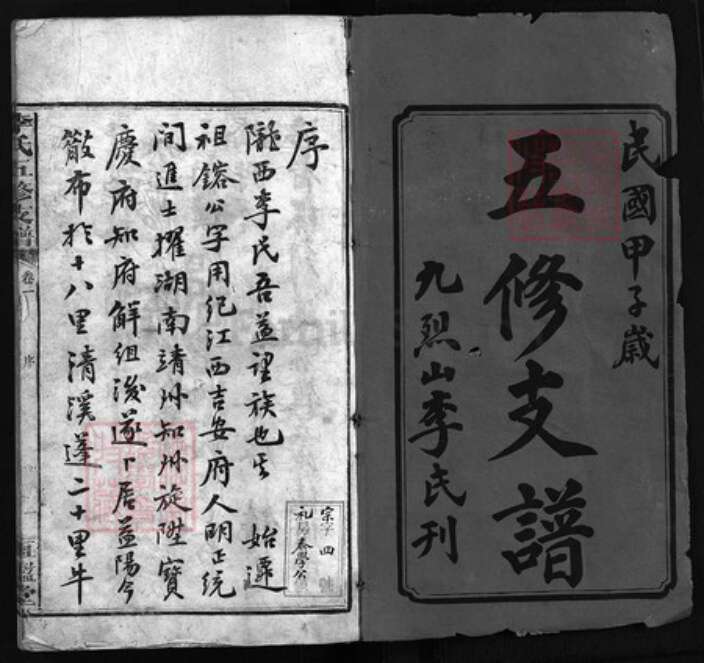 民國甲子歲
五修支譜
九烈山李氏刊
序
隴西李氏吾益望族也其 始遷
祖鎔公字用紀江西吉安府人明正統
間進士擢湖南靖州知州旋陞寶
慶府知府解組後遂卜居益陽今
散布於十八里清溪蓬二十里牛
宗字四號
禮房泰學公
李氏五修支譜
卷一
序